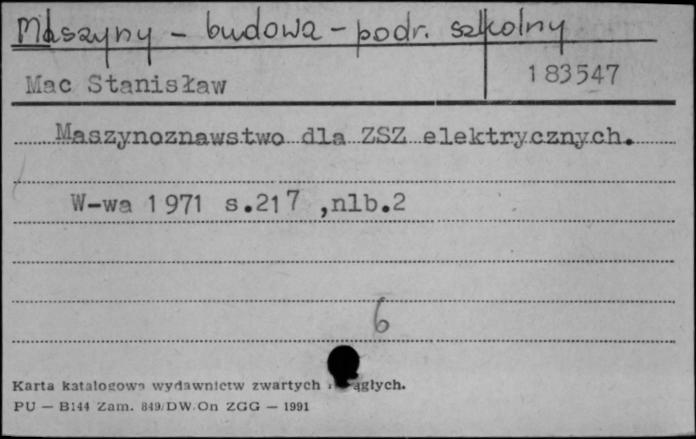 Maszyny - budowa - podr. szkolny
Mac Stanisław 183547
Maszynoznawstwo dla ZSZ elektrycznych.
W-wa 1971 s.217 ,nlb.2
6
Karta katalogowa wydawnictw zwartych i ciągłych.
PU — B144 Zam. 849/DW/On ZGG — 1991